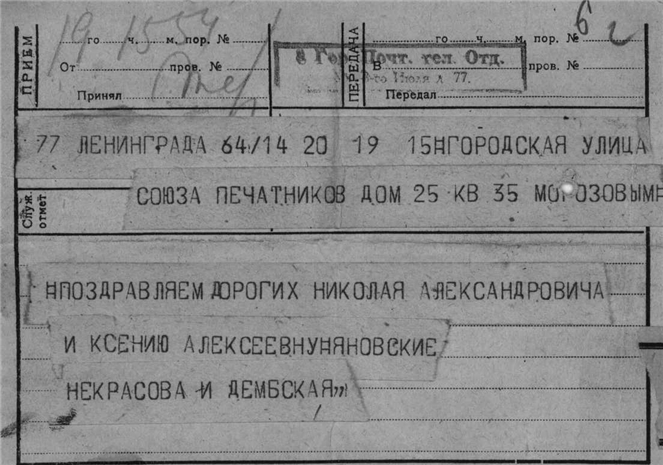 ПРИЕМ
19 го 15 ч. 54 м. пор. №
От пров. №
Принял
ПЕРЕДАЧА
го ч. м. пор. № 6 г
В пров. №
Передал
8 Гор. Почт. тел. Отд.
Июля д 77.
77 ЛЕНИНГРАДА 64/14 20 19 15НГОРОДСКАЯ УЛИЦА
Служ. отмет
СОЮЗА ПЕЧАТНИКОВ ДОМ 25 КВ 35 МОРОЗОВЫМН
НПОЗДРАВЛЯЕМ ДОРОГИХ НИКОЛАЯ АЛЕКСАНДРОВИЧА
И КСЕНИЮ АЛЕКСЕЕВНУНЯНОВСКИЕ
НЕКРАСОВА И ДЕМБСКАЯ„